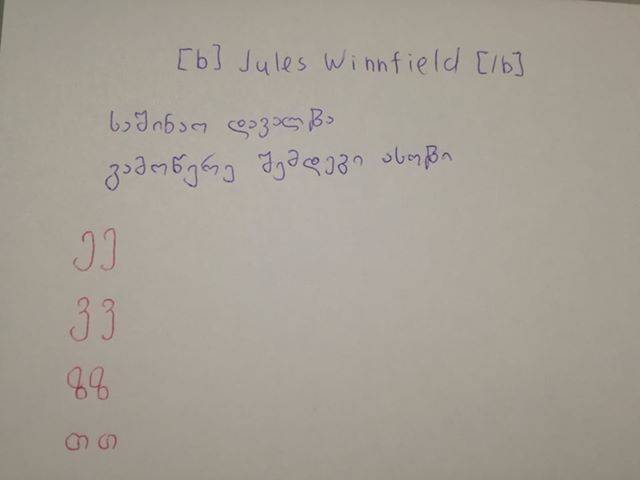 [b] Jules Winnfield [/b]
საშინაო დავალება
გამოწერე შემდეგი ასოები
ე ე
ვ ვ
ზ ზ
თ თ